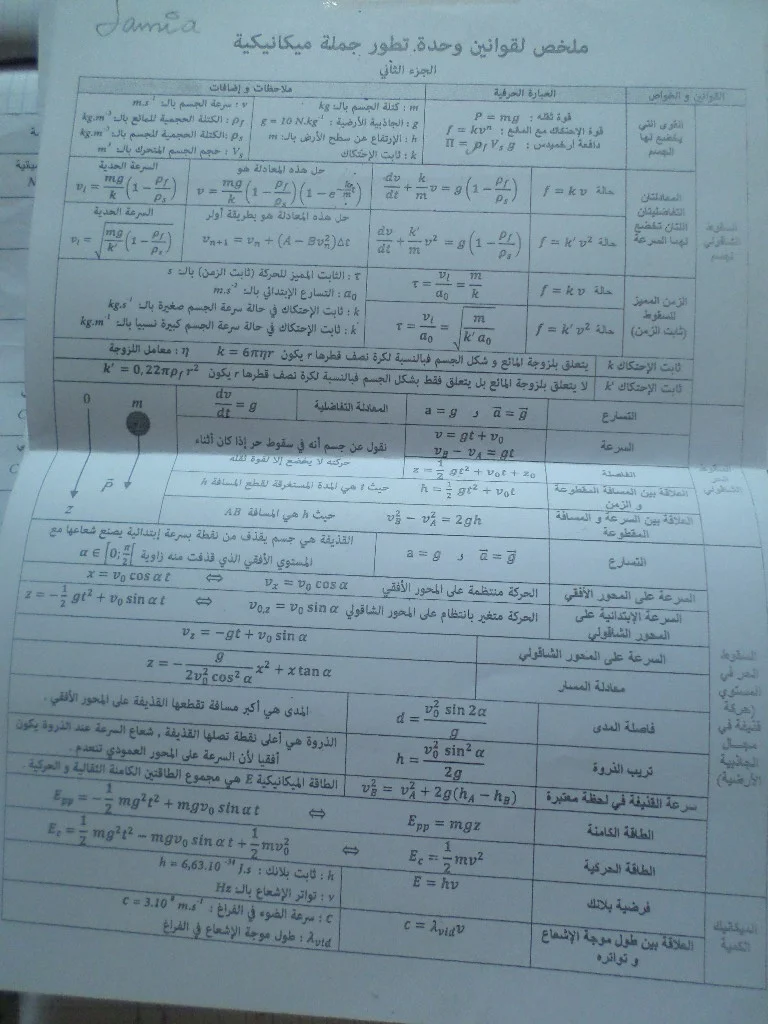 Jamia
ملخص لقوانين وحدة. تطور جملة ميكانيكية
الجزء الثاني
القوانين و الخواص
العبارة الحرفية
ملاحظات و إضافات
السقوط الشاقولي لجسم
القوى التي يخضع لها الجسم
قوة ثقله : P = mg
قوة الإحتكاك مع المائع : f = kvⁿ
دافعة أرخميدس : Π = ρf Vs g
m : كتلة الجسم بالـ kg
g : الجاذبية الأرضية : g = 10 N.kg⁻¹
h : الإرتفاع عن سطح الأرض بالـ m
k : ثابت الإحتكاك
v : سرعة الجسم بالـ m.s⁻¹
ρf : الكتلة الحجمية للمائع بالـ kg.m⁻³
ρs : الكتلة الحجمية للجسم بالـ kg.m⁻³
Vs : حجم الجسم المتحرك بالـ m³
المعادلتان التفاضليتان اللتان تخضع لهما السرعة
حالة f = k v
dv/dt + k/m v = g (1 − ρf/ρs)
حل هذه المعادلة هو
v = mg/k (1 − ρf/ρs)(1 − e^(−k/m t))
السرعة الحدية
vl = mg/k (1 − ρf/ρs)
حالة f = k' v²
dv/dt + k'/m v² = g (1 − ρf/ρs)
حل هذه المعادلة هو بطريقة أولر
vn+1 = vn + (A − Bvn²)Δt
السرعة الحدية
vl = √(mg/k' (1 − ρf/ρs))
الزمن المميز للسقوط (ثابت الزمن)
حالة f = k v
τ = vl/a0 = m/k
حالة f = k' v²
τ = vl/a0 = √(m/(k' a0))
τ : الثابت المميز للحركة (ثابت الزمن) بالـ s
a0 : التسارع الإبتدائي بالـ m.s⁻²
k : ثابت الإحتكاك في حالة سرعة الجسم صغيرة بالـ kg.s⁻¹
k' : ثابت الإحتكاك في حالة سرعة الجسم كبيرة نسبيا بالـ kg.m⁻¹
ثابت الإحتكاك k يتعلق بلزوجة المائع و شكل الجسم فبالنسبة لكرة نصف قطرها r يكون k = 6πηr η : معامل اللزوجة
ثابت الإحتكاك k' لا يتعلق بلزوجة المائع بل يتعلق فقط بشكل الجسم فبالنسبة لكرة نصف قطرها r يكون k' = 0,22πρf r²
السقوط الحر الشاقولي
التسارع
a = g و a⃗ = g⃗
المعادلة التفاضلية
dv/dt = g
0
m
P⃗
z
السرعة
v = gt + v0
vB − vA = gt
نقول عن جسم أنه في سقوط حر إذا كان أثناء
حركته لا يخضع إلا لقوة ثقله
الفاصلة
z = 1/2 gt² + v0t + z0
العلاقة بين المسافة المقطوعة و الزمن
h = 1/2 gt² + v0t
حيث t هي المدة المستغرقة لقطع المسافة h
العلاقة بين السرعة و المسافة المقطوعة
vB² − vA² = 2gh
حيث h هي المسافة AB
السقوط الحر في المستوي (حركة قذيفة في مجال الجاذبية الأرضية)
التسارع
a = g و a⃗ = g⃗
القذيفة هي جسم يقذف من نقطة بسرعة إبتدائية يصنع شعاعها مع
المستوي الأفقي الذي قذفت منه زاوية α ∈ [0; π/2[
السرعة على المحور الأفقي
الحركة منتظمة على المحور الأفقي
vx = v0 cos α ⇔ x = v0 cos α t
السرعة الإبتدائية على المحور الشاقولي
الحركة متغير بانتظام على المحور الشاقولي
v0,z = v0 sin α ⇔ z = −1/2 gt² + v0 sin α t
السرعة على المحور الشاقولي
vz = −gt + v0 sin α
معادلة المسار
z = − g/(2v0² cos² α) x² + x tan α
فاصلة المدى
d = v0² sin 2α / g
المدى هي أكبر مسافة تقطعها القذيفة على المحور الأفقي .
تريب الذروة
h = v0² sin² α / 2g
الذروة هي أعلى نقطة تصلها القذيفة , شعاع السرعة عند الذروة يكون
أفقيا لأن السرعة على المحور العمودي تنعدم .
سرعة القذيفة في لحظة معتبرة
vB² = vA² + 2g(hA − hB)
الطاقة الميكانيكية E هي مجموع الطاقتين الكامنة الثقالية و الحركية .
الطاقة الكامنة
Epp = mgz ⇔ Epp = −1/2 mg²t² + mgv0 sin α t
الطاقة الحركية
Ec = 1/2 mv² ⇔ Ec = 1/2 mg²t² − mgv0 sin α t + 1/2 mv0²
الميكانيك الكمية
فرضية بلانك
E = hν
h : ثابت بلانك : h = 6,63.10⁻³⁴ J.s
ν : تواتر الإشعاع بالـ Hz
العلاقة بين طول موجة الإشعاع و تواتره
c = λvid ν
C : سرعة الضوء في الفراغ : C = 3.10⁸ m.s⁻¹
λvid : طول موجة الإشعاع في الفراغ